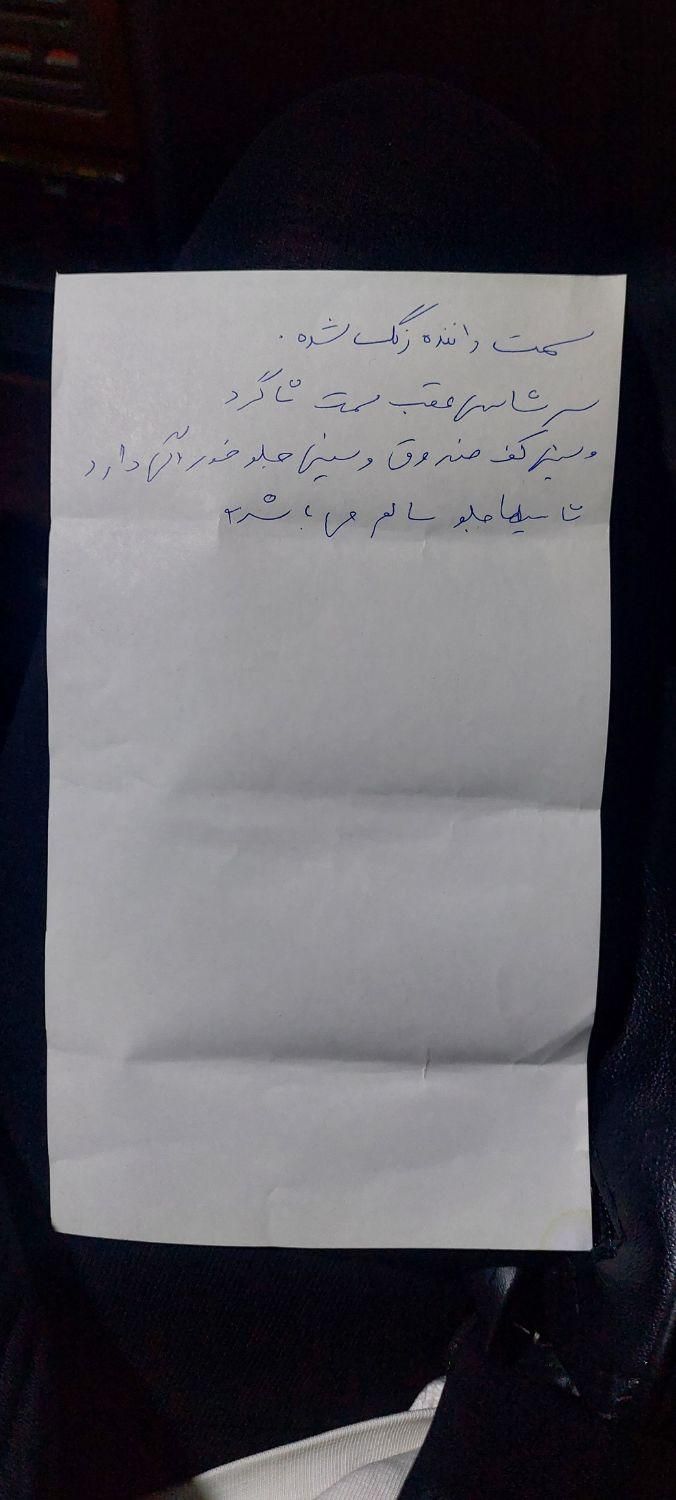 سمت راننده رنگ شده.
سر شاسی عقب سمت شاگرد
و سینی کف صندوق و سینی جلو خوردگی دارد
شاسیها جلو سالم می باشد